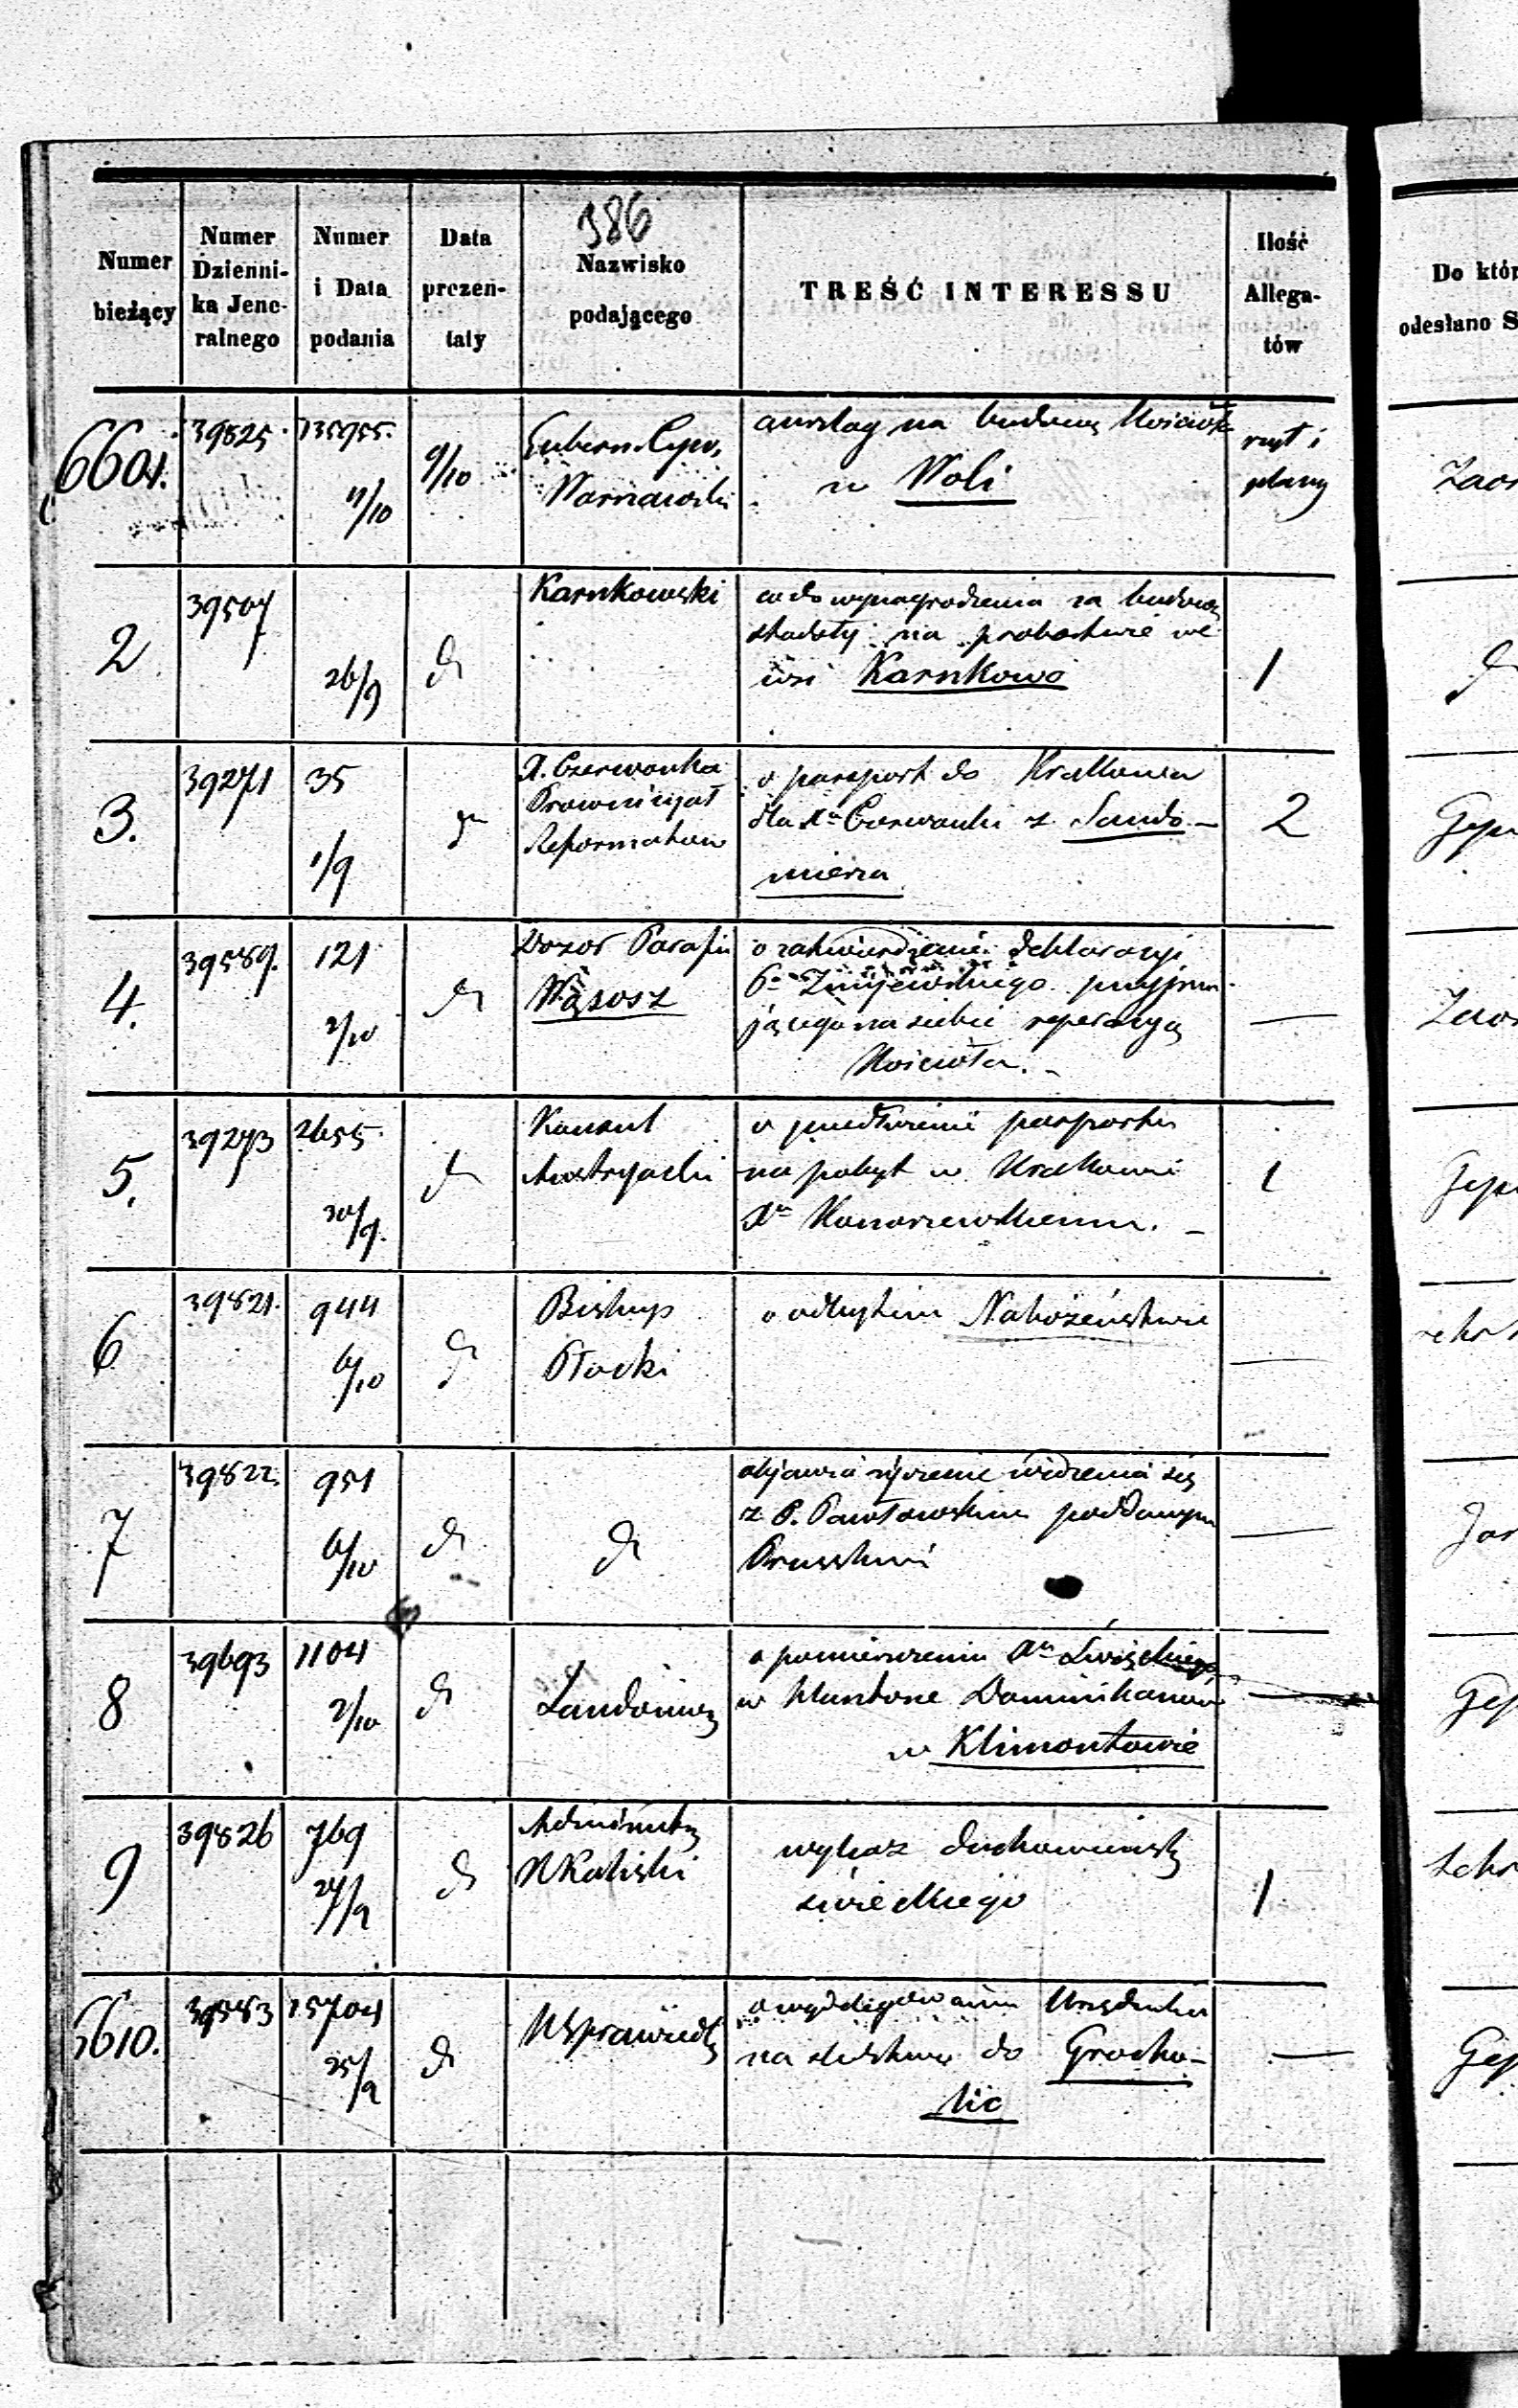 386
Numer bieżący
Numer Dzienni-
ka Jene-
ralnego
Numer
i Data
podania
Data
prezen-
taty
Nazwisko
podającego
TREŚĆ INTERESSU
Ilość
Allega-
tów
Do któr
odesłano S
6601.
39825
135955.
9/10
Gubern. Cyw.
Warszawski
anszlag na budowę Kościoła
w Woli
i
plany
2
39507
26/9
d
Karnkowski
co do wynagrodzenia za budowę
stodoły na probostwie we
wsi Karnkowo
1
3.
39271
35
1/9
X. Czerwonka
Prowincyał
Reformatow
o passport do Krakowa
dla Xa Czerwonki z Sando-
mierza
2
4.
39589.
121
2/10
d
Dozor Parafii
Wąsosz
o zatwierdzenie deklaracyi
Po Zmijewskiego przyjmu-
jącego na siebie reperacyą
Kościoła. -
—
5.
39273
2655
30/9.
d
Konsul
Austryacki
o przedłużenie passportu
na pobyt w Krakowie
Xu Konarzewskiemu. -
1
6
39821.
944
6/10
d
Biskup
Płocki
o odbytem Nabożeństwie
—
7
39822.
951
6/10
d
d
objawia życzenie widzenia się
z P. Pawłowskim poddanym
Pruskim
—
8
39693
1104
2/10
d
Sandomierz
o pomieszczeniu Xa
w Klasztorze Dominikanów
w Klimontowie
—
9
39826
769
27/9
d
Administr
Kaliski
wykaz duchowieństw
świeckiego
1
6610.
39583
15704
25/9
d
KSprawiedl
o wydelegowanie Urzędnika
na śledztwo do Grocho-
lic
—